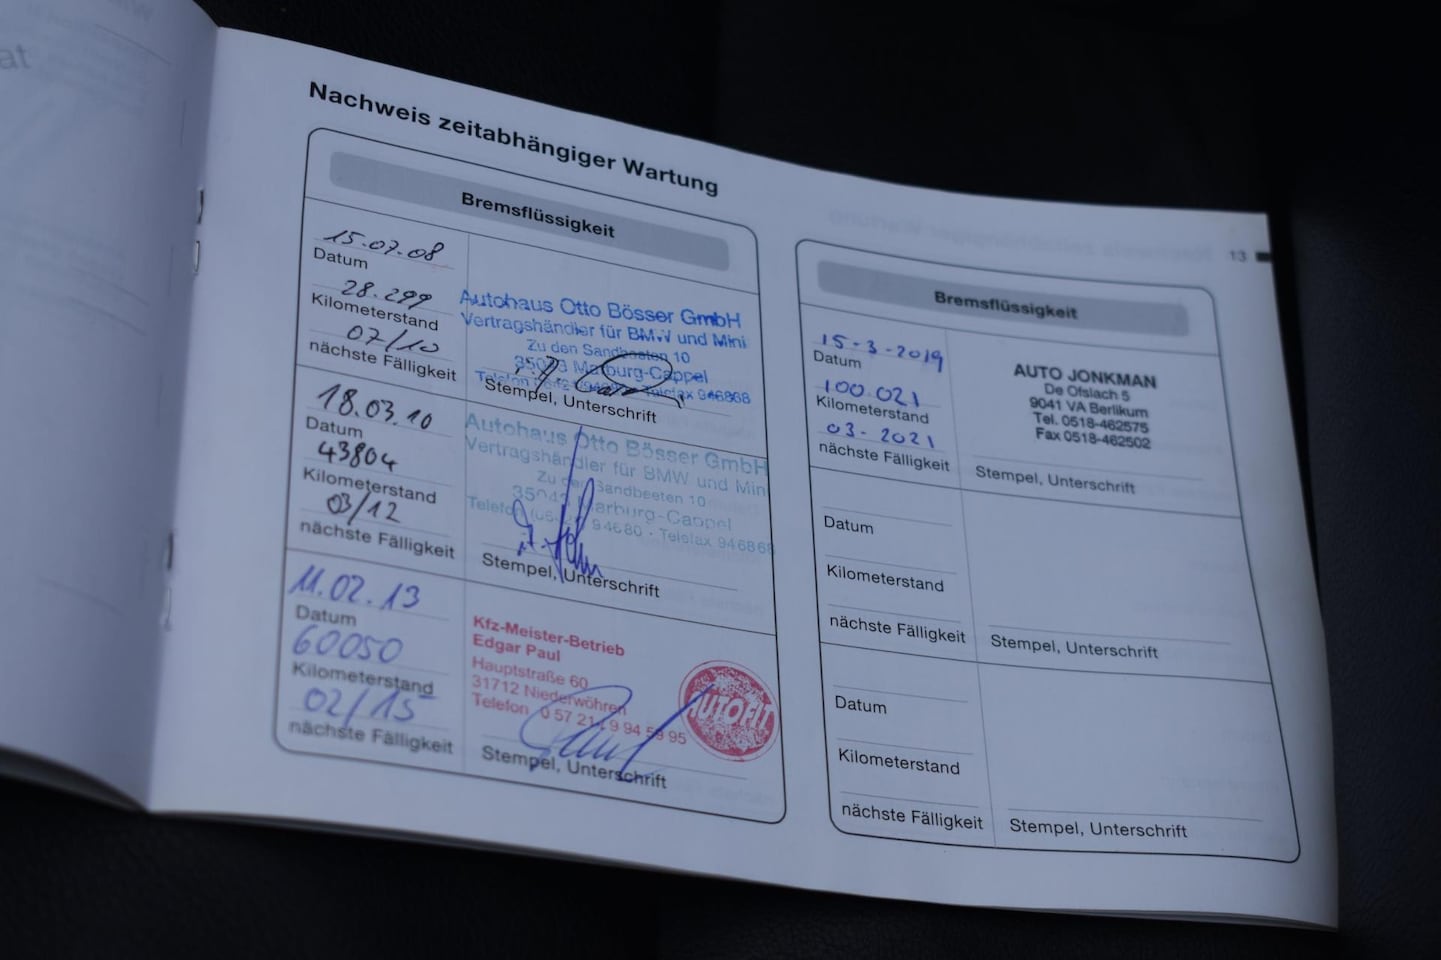 Nachweis zeitabhängiger Wartung
Bremsflüssigkeit
15.07.08
Datum
28.299
Kilometerstand
07/10
nächste Fälligkeit
Autohaus Otto Bösser GmbH
Vertragshändler für BMW und Mini
Zu den Sandbeeten 10
35043 Marburg-Cappel
Telefax 946868
Stempel, Unterschrift
18.03.10
Datum
43804
Kilometerstand
03/12
nächste Fälligkeit
Autohaus Otto Bösser GmbH
Vertragshändler für BMW und Mini
Zu den Sandbeeten 10
35043 Marburg-Cappel
Telefon 94680 - Telefax 946868
Stempel, Unterschrift
11.02.13
Datum
60050
Kilometerstand
02/15
nächste Fälligkeit
Kfz-Meister-Betrieb
Edgar Paul
Hauptstraße 60
31712 Niederwöhren
Telefon 0 57 21 / 9 94 59 95
AUTOFIT
Stempel, Unterschrift
13
Bremsflüssigkeit
15-3-2019
Datum
100.021
Kilometerstand
03-2021
nächste Fälligkeit
AUTO JONKMAN
De Ofslach 5
9041 VA Berlikum
Tel. 0518-462575
Fax 0518-462502
Stempel, Unterschrift
Datum
Kilometerstand
nächste Fälligkeit
Stempel, Unterschrift
Datum
Kilometerstand
nächste Fälligkeit
Stempel, Unterschrift
at